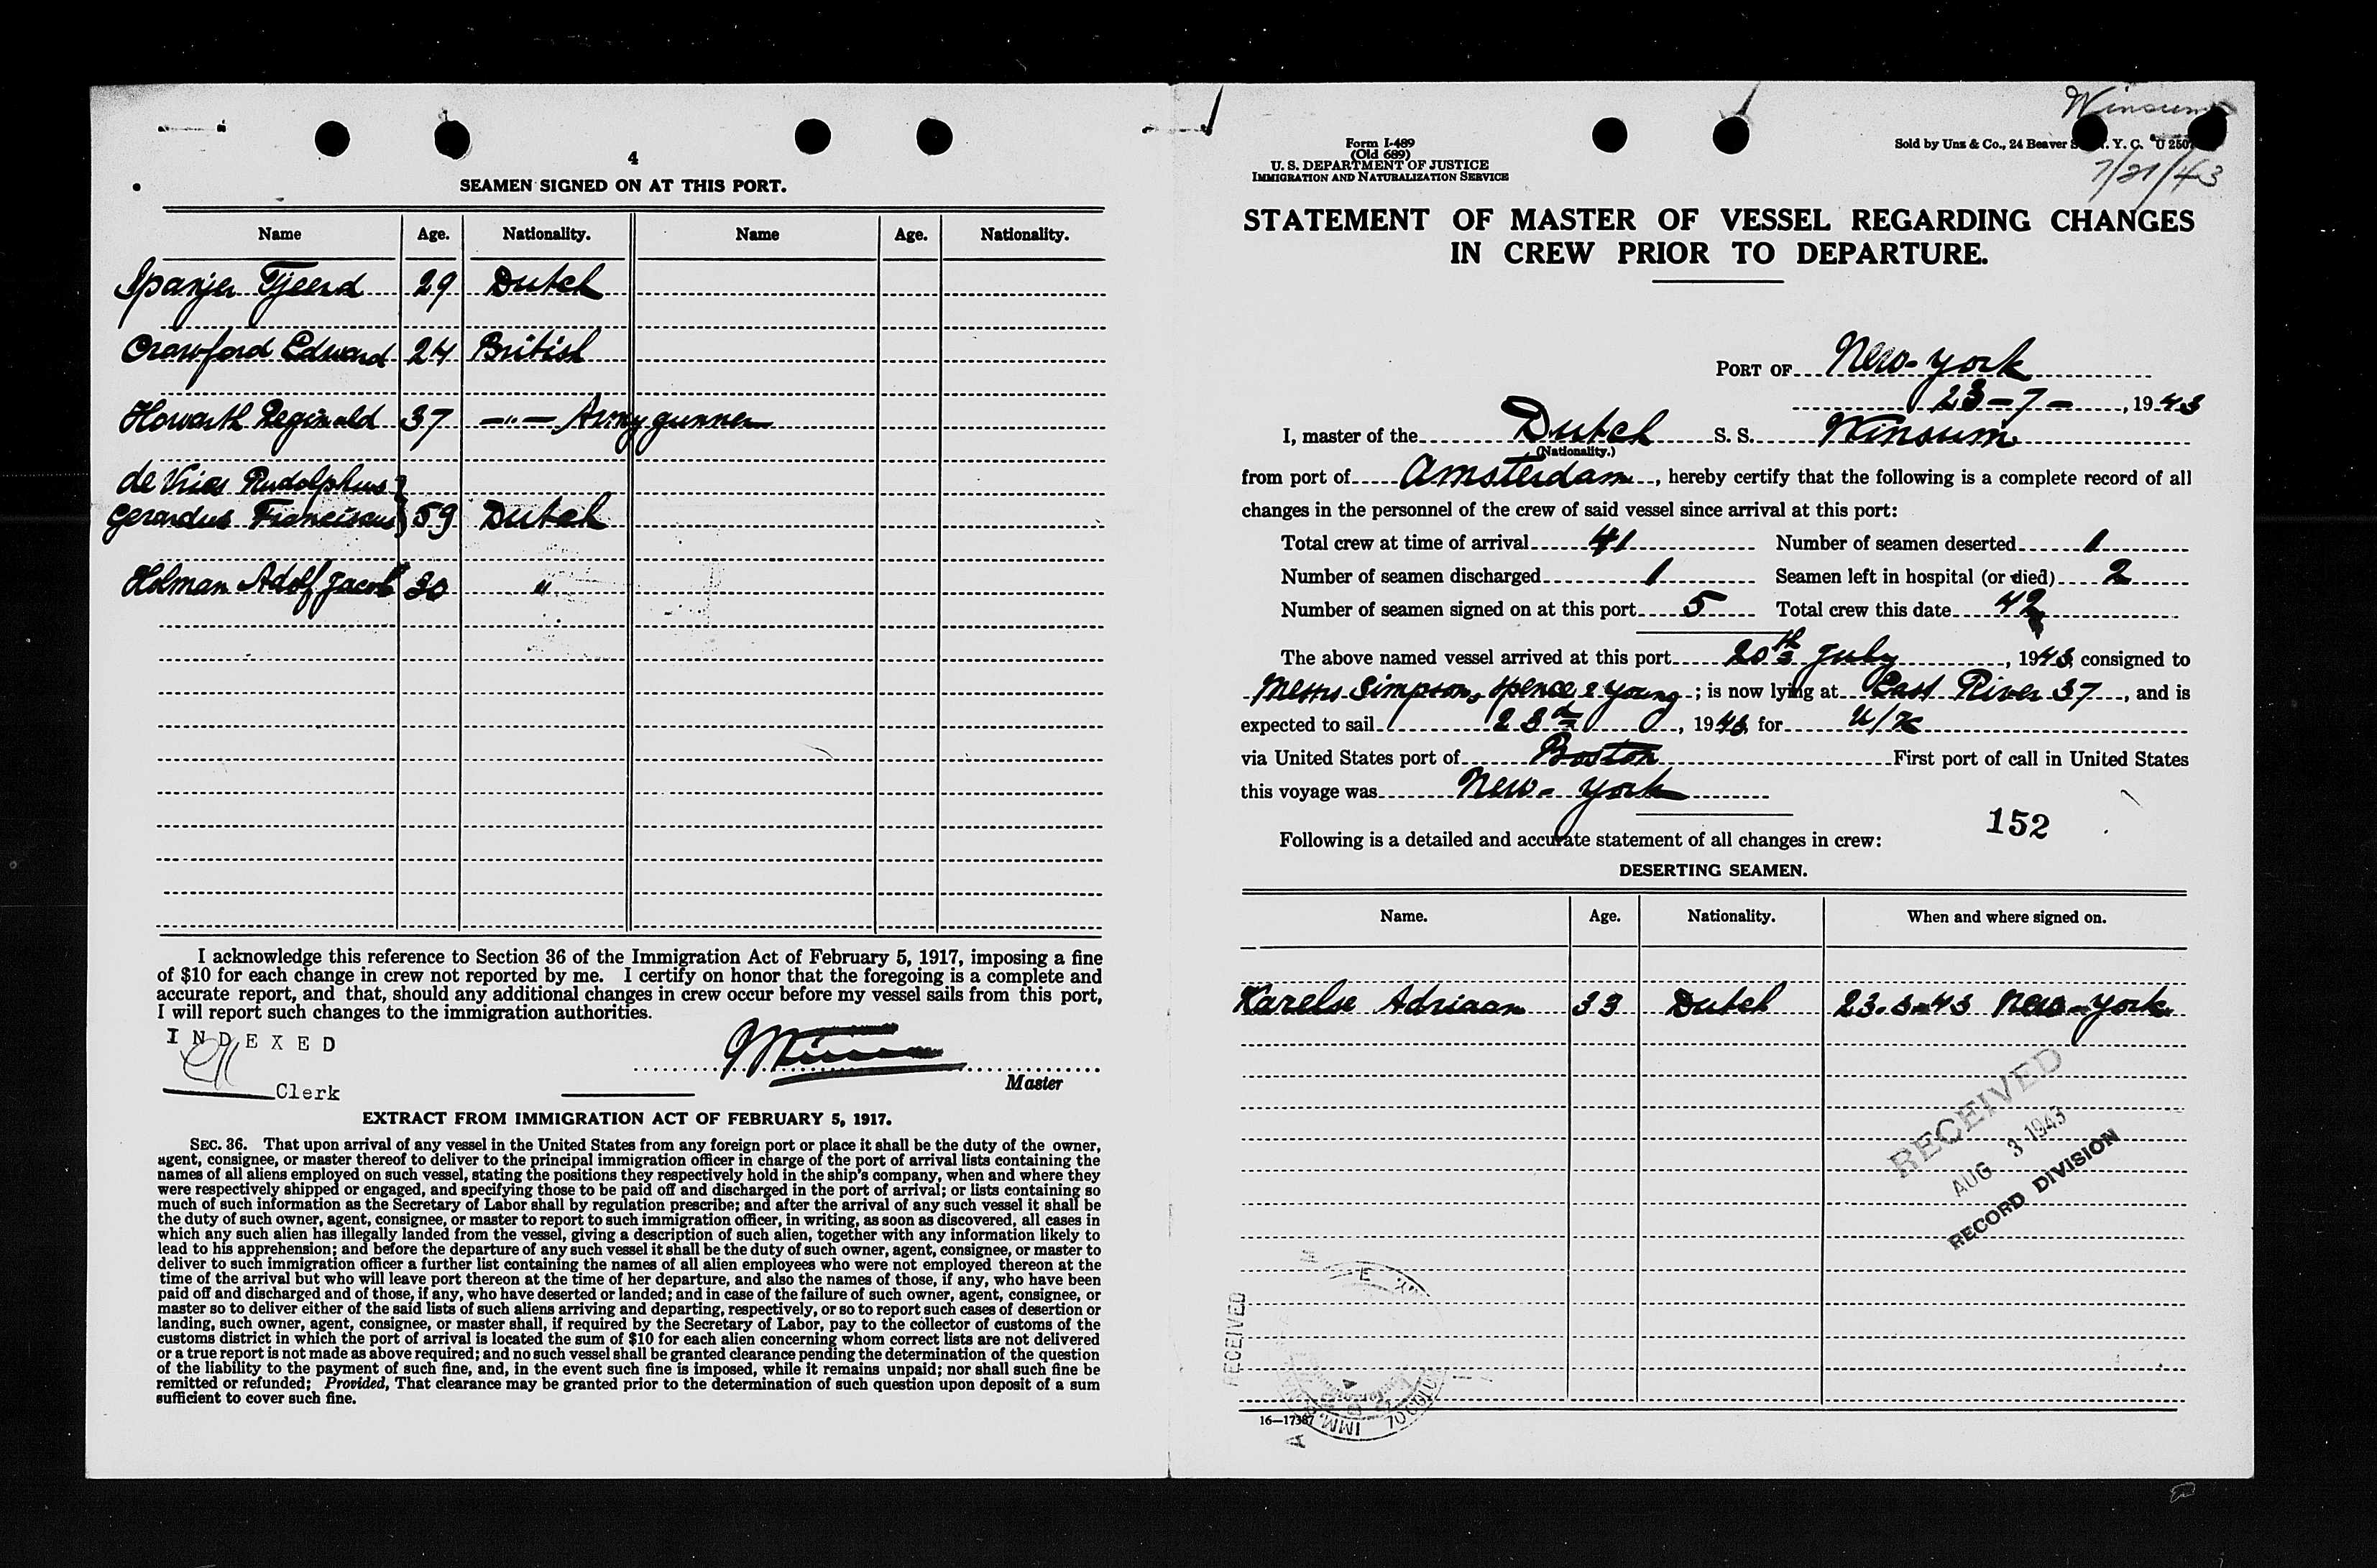 4
SEAMEN SIGNED ON AT THIS PORT.
Name Age. Nationality. Name Age. Nationality.
Spanjer Tjeerd 29 Dutch
Crawford Edward 24 British
Howarth Reginald 37 —"— Army gunner
de Vries Rudolphus
Gerardus Franciscus } 59 Dutch
Holman Adolf Jacob 30 "
I acknowledge this reference to Section 36 of the Immigration Act of February 5, 1917, imposing a fine
of $10 for each change in crew not reported by me. I certify on honor that the foregoing is a complete and
accurate report, and that, should any additional changes in crew occur before my vessel sails from this port,
I will report such changes to the immigration authorities.
INDEXED
Clerk
Master
EXTRACT FROM IMMIGRATION ACT OF FEBRUARY 5, 1917.
SEC. 36. That upon arrival of any vessel in the United States from any foreign port or place it shall be the duty of the owner,
agent, consignee, or master thereof to deliver to the principal immigration officer in charge of the port of arrival lists containing the
names of all aliens employed on such vessel, stating the positions they respectively hold in the ship's company, when and where they
were respectively shipped or engaged, and specifying those to be paid off and discharged in the port of arrival; or lists containing so
much of such information as the Secretary of Labor shall by regulation prescribe; and after the arrival of any such vessel it shall be
the duty of such owner, agent, consignee, or master to report to such immigration officer, in writing, as soon as discovered, all cases in
which any such alien has illegally landed from the vessel, giving a description of such alien, together with any information likely to
lead to his apprehension; and before the departure of any such vessel it shall be the duty of such owner, agent, consignee, or master to
deliver to such immigration officer a further list containing the names of all alien employees who were not employed thereon at the
time of the arrival but who will leave port thereon at the time of her departure, and also the names of those, if any, who have been
paid off and discharged and of those, if any, who have deserted or landed; and in case of the failure of such owner, agent, consignee, or
master so to deliver either of the said lists of such aliens arriving and departing, respectively, or so to report such cases of desertion or
landing, such owner, agent, consignee, or master shall, if required by the Secretary of Labor, pay to the collector of customs of the
customs district in which the port of arrival is located the sum of $10 for each alien concerning whom correct lists are not delivered
or a true report is not made as above required; and no such vessel shall be granted clearance pending the determination of the question
of the liability to the payment of such fine, and, in the event such fine is imposed, while it remains unpaid; nor shall such fine be
remitted or refunded; Provided, That clearance may be granted prior to the determination of such question upon deposit of a sum
sufficient to cover such fine.
Winsum
Form I-489
(Old 689)
U. S. DEPARTMENT OF JUSTICE
IMMIGRATION AND NATURALIZATION SERVICE
Sold by Unz & Co., 24 Beaver N. Y. C.
7/21/43
STATEMENT OF MASTER OF VESSEL REGARDING CHANGES
IN CREW PRIOR TO DEPARTURE.
PORT OF New-York
23-7-, 1943
I, master of the Dutch S. S. Winsum
(Nationality.)
from port of Amsterdam, hereby certify that the following is a complete record of all
changes in the personnel of the crew of said vessel since arrival at this port:
Total crew at time of arrival 41 Number of seamen deserted 1
Number of seamen discharged 1 Seamen left in hospital (or died) 2
Number of seamen signed on at this port 5 Total crew this date 42
The above named vessel arrived at this port 20th July, 1943 consigned to
Messrs Simpson, Spence & Young; is now lying at East River 37, and is
expected to sail 23d, 1943 for U/K
via United States port of Boston First port of call in United States
this voyage was New-York
152
Following is a detailed and accurate statement of all changes in crew:
DESERTING SEAMEN.
Name. Age. Nationality. When and where signed on.
Karelse Adriaan 33 Dutch 23.3.43 New-York
RECEIVED
AUG 3 1943
RECORD DIVISION
16—17387